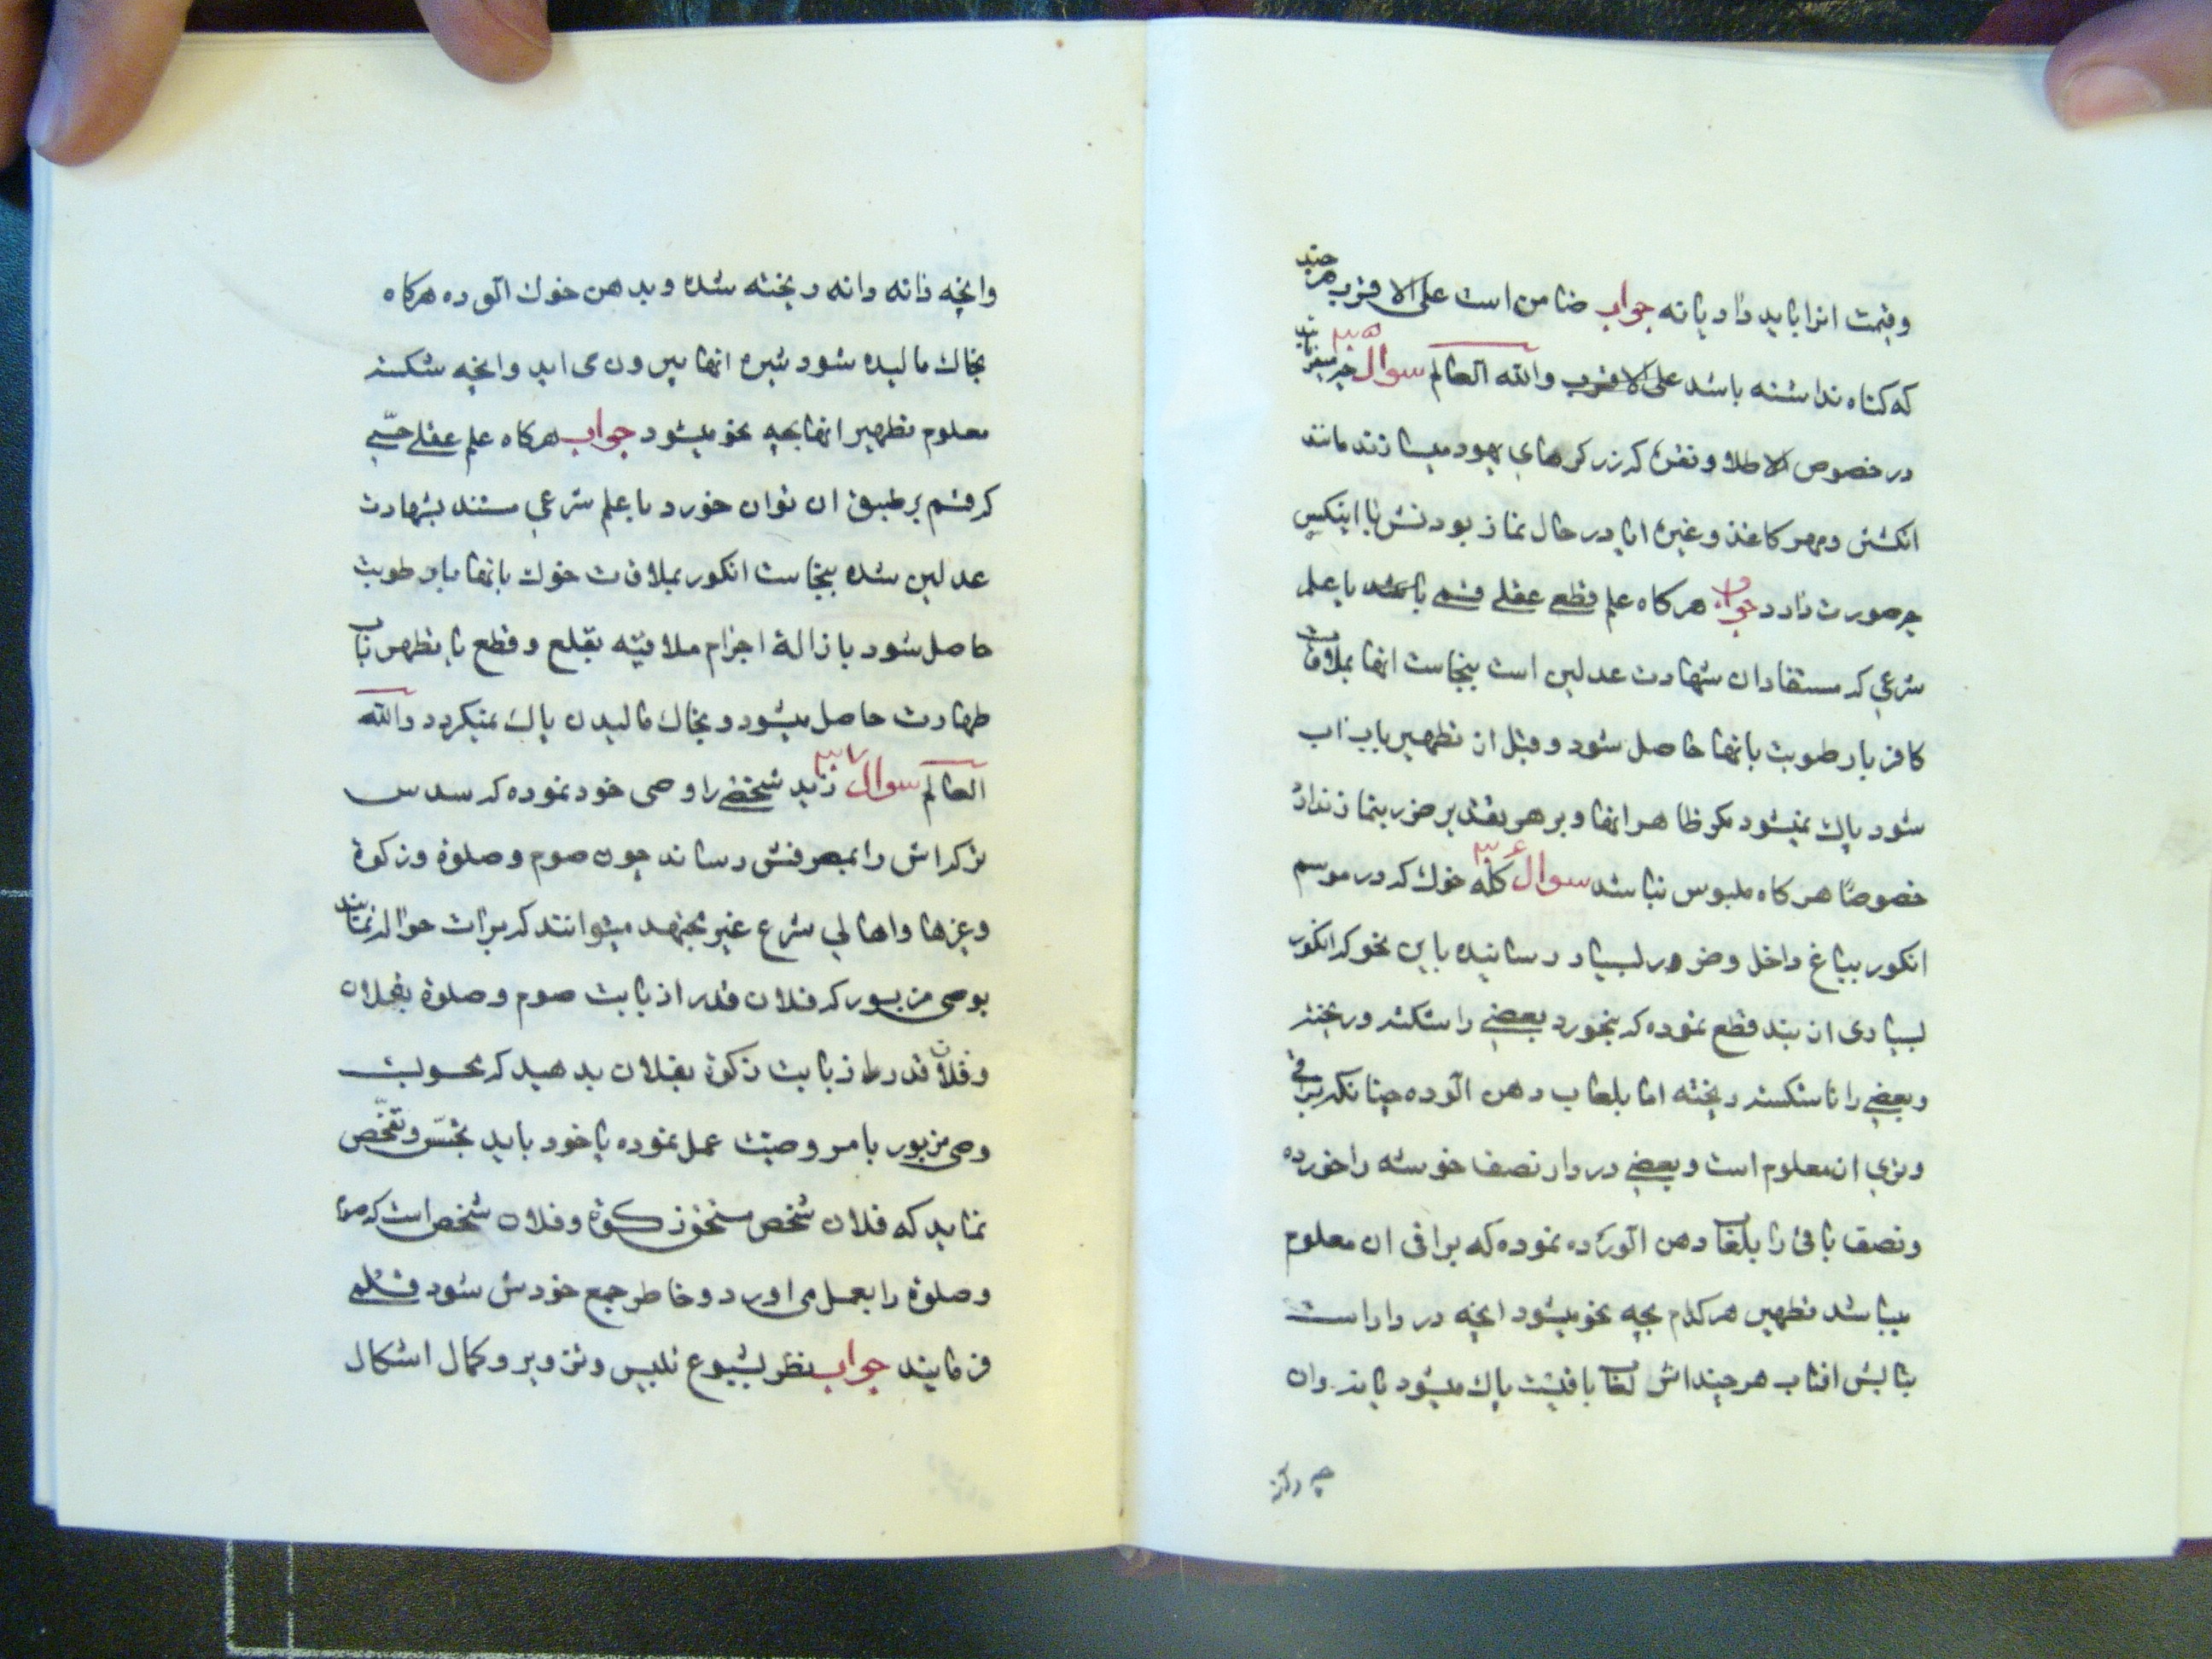 وقیمت انرا باید داد یا نه جواب ضامن است علی الاقرب هر چند
که کناه نداشته باشد علی الاقرب والله العالم سوال ۳۵ چه میفرمایند
در خصوص طلا و نقره که زرکرهای یهود میسازند مانند
انکشتر و مهر کاغذ و غیره ایا در حال نماز بودنش با اینکس
چه صورت دارد جواب هرکاه علم قطع عقلی قسمی باشد یا علم
شرعی که مستفاد از شهادت عدلین است بنجاست انها بملاقات
کافر بارطوبت بانها حاصل شود و قبل از تطهیر باب اب
شود پاک نمیشود مکر ظاهر انها و بر هر تقدیر ضرر بنماز ندارد
خصوصًا هرکاه ملبوس نباشد سوال ۳۶ کله خوک که در موسم
انکور بباغ داخل و ضرر بسیار رسانیده باین نحو که انکور
بسیاری از بند قطع نموده که بخورد بعضی را شکسته و ریخته
و بعضی را ناشکسته ریخته اما بلعاب دهن الوده چنانکه براقی
و تری ان معلوم است و بعضی در دار نصف خوشه را خورده
و نصف باقی را بلعاب دهن الوده نموده که براقی ان معلوم
میباشد تطهیر هر کدام بچه نحو میشود انچه در دار است
بتابش افتاب هر چند اش لعاب باقیست پاک میشود یا نه وان
وانچه دانه دانه ریخته شده و بدهن خوک الوده هرکاه
بخاک مالیده شود شیره انها بیرون می اید وانچه شکسته
معلوم تطهیر انها بچه نحو میشود جواب هرکاه علم عقلی حسّی
که قسم بر طبق ان توان خورد یا علم شرعی مستند بشهادت
عدلین شده بنجاست انکور بملاقات خوک بانها بارطوبت
حاصل شود بازالة اجزاء ملاقیّه بقلع و قطع یا بتطهیر باب
طهارت حاصل میشود و بخاک مالیدن پاک نمیکردد والله
العالم سوال ۳۷ زید شخصی را وصی خود نموده که سدس
ترکه اش را بمصرفش رساند چون صوم و صلوة و زکوة
و غیرها و اهالی شرع غیر مجتهد میتوانند که برات حواله نمایند
بوصی مزبور که فلان قدر از بابت صوم و صلوة بفلان
و فلان قدر از بابت زکوة بفلان بدهید که بموجب
وصی مزبور بامر وصیّت عمل نموده یا خود باید تجسّس و تفحّص
نماید که فلان شخص مستحق زکوة و فلان شخص است که صوم
و صلوة را بعمل می اورد و خاطر جمع خودش شود قلمی
فرمایند جواب نظر بشیوع تلبیس و تزویر و کمال اشکال